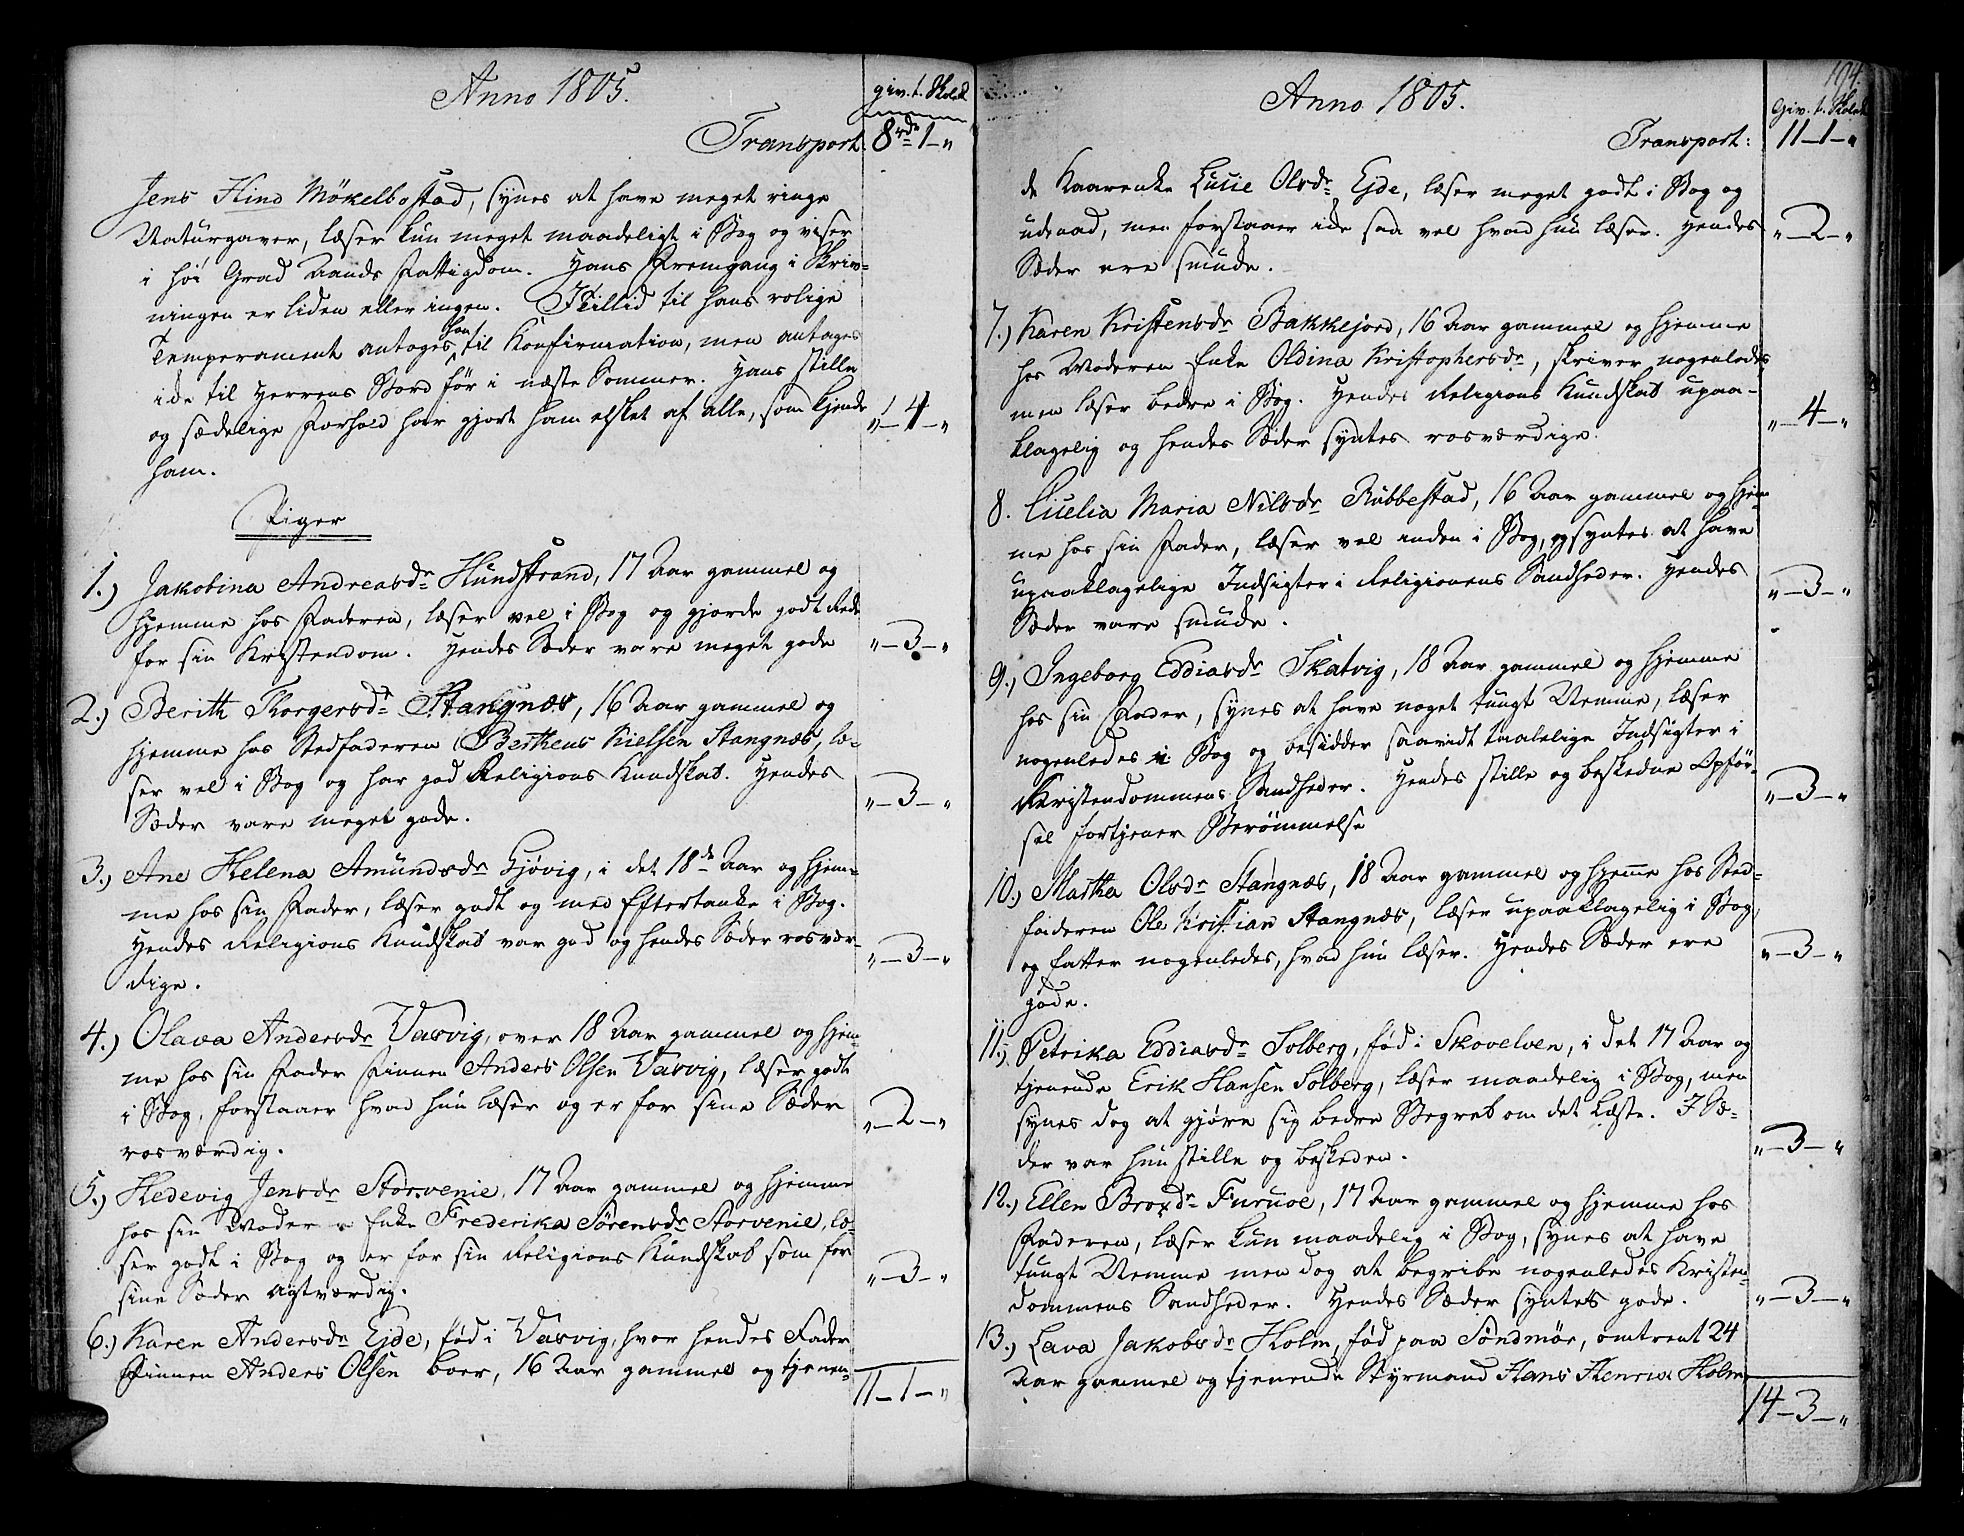 Anno 1805.
giv. t. Skolek
Transport: 8rd 1 - "
Jens Hind Mökelbostad, synes at have meget ringe
Naturgaver, læser kun meget maadeligt i Bog og viser
i höi Grad Aands Fattigdom. Hans Fremgang i Skriv-
ningen er liden eller ingen. Tillid til hans rolige
Temperament antoges han til Konfirmation, men antages
ikke til Herrens Bord för i næste Sommer. Hans stille
og sædelige Forhold har gjort ham elsket af alle, som kjende
"-4-"
ham.
Piger
1.) Jakobina Andreasdr Hundstrand, 17 Aar gammel og
hjemme hos Faderen, læser vel i Bog og gjorde godt Rede
for sin Kristendom. Hendes Sæder vare meget gode
"-3-"
2.) Berith Thorgersdr Stangnæs, 16 Aar gammel og
hjemme hos Stedfaderen Bertheus Nielsen Stangnæs, læ-
ser vel i Bog og har god Religions Kundskab. Hendes
Sæder vare meget gode.
"-3-"
3.) Ane Helena Amundsdr Gjövig, i det 18de Aar og hjem-
me hos sin Fader, læser godt og med Eftertanke i Bog.
Hendes Religions Kundskab var god og hendes Sæder rosvær-
"-3-"
dige.
4.) Olava Andersdr Vasvig, over 18 Aar gammel og hjem-
me hos sin Fader Finnen Anders Olsen Vasvig, læser godt
i Bog, forstaaer hvad hun læser og er for sine Sæder
"-2-"
rosværdig.
5.) Hedevig Jensdr Storvenie, 17 Aar gammel og hjemme
hos sin Moder Enke Frederika Sörensdr Storvenie, læ-
ser godt i Bog og er for sin Religions Kundskab som for
"-3-"
sine Sæder agtværdig.
6.) Karen Andersdr Ejde, föd i Vasvig, hvor hendes Fader
Finnen Anders Olsen boer, 16 Aar gammel og tjenen-
11-1-"
104.
Anno 1805.
Giv. t. Skolek
Transport: 11-1-"
de Kaarenke Lucie Olsdr Ejde, læser meget godt i Bog og
udenad, men forstaaer ikke saa vel hvad hun læser. Hendes
"-2-"
Sæder ere smukke.
7.) Karen Kristensdr Bakkejord, 16 Aar gammel og hjemme
hos Moderen Enke Oldina Kristophersdr, skriver nogenledes
men læser bedre i Bog. Hendes Religions Kundskab upaa-
"-4-"
klagelig og hendes Sæder syntes rosværdige.
8. Cicelia Maria Nilsdr Rubbestad, 16 Aar gammel og hjem-
me hos sin Fader, læser vel inden i Bog, og syntes at have
upaaklagelige Indsigter i Religionens Sandheder. Hendes
"-3-"
Sæder vare smukke.
9.) Ingeborg Eddiasdr Skatvig, 18 Aar gammel og hjemme
hos sin Fader, synes at have noget tungt Nemme, læser
nogenledes i Bog og besidder saavidt taalelige Indsigter i
Kristendommens Sandheder. Hendes stille og beskedne Opför-
"-3-"
sel fortjener Berömmelse
10.) Martha Olsdr Stangnæs, 18 Aar gammel og hjemme hos Sted-
faderen Ole Kristian Stangnæs, læser upaaklagelig i Bog,
og fatter nogenledes, hvad hun læser. Hendes Sæder ere
"-3-"
gode.
11.) Petrika Eddiasdr Solberg, föd i Skovelven, i det 17 Aar og
tjenende Erik Hansen Solberg, læser maadelig i Bog, men
synes dog at gjöre sig bedre Begreb om det Læste. I Sæ-
"-3-"
der var hun stille og beskeden.
12.) Ellen Broxdr Furuoe, 17 Aar gammel og hjemme hos
Faderen, læser kun maadelig i Bog, synes at have
tungt Nemme men dog at begribe nogenledes Kristen-
dommens Sandheder. Hendes Sæder syntes gode.
"-3-"
13.) Lava Jakobsdr Holm, föd paa Söndmör, omtrent 24
Aar gammel og tjenende Styrmand Hans Henrik Holm,
14-3-"